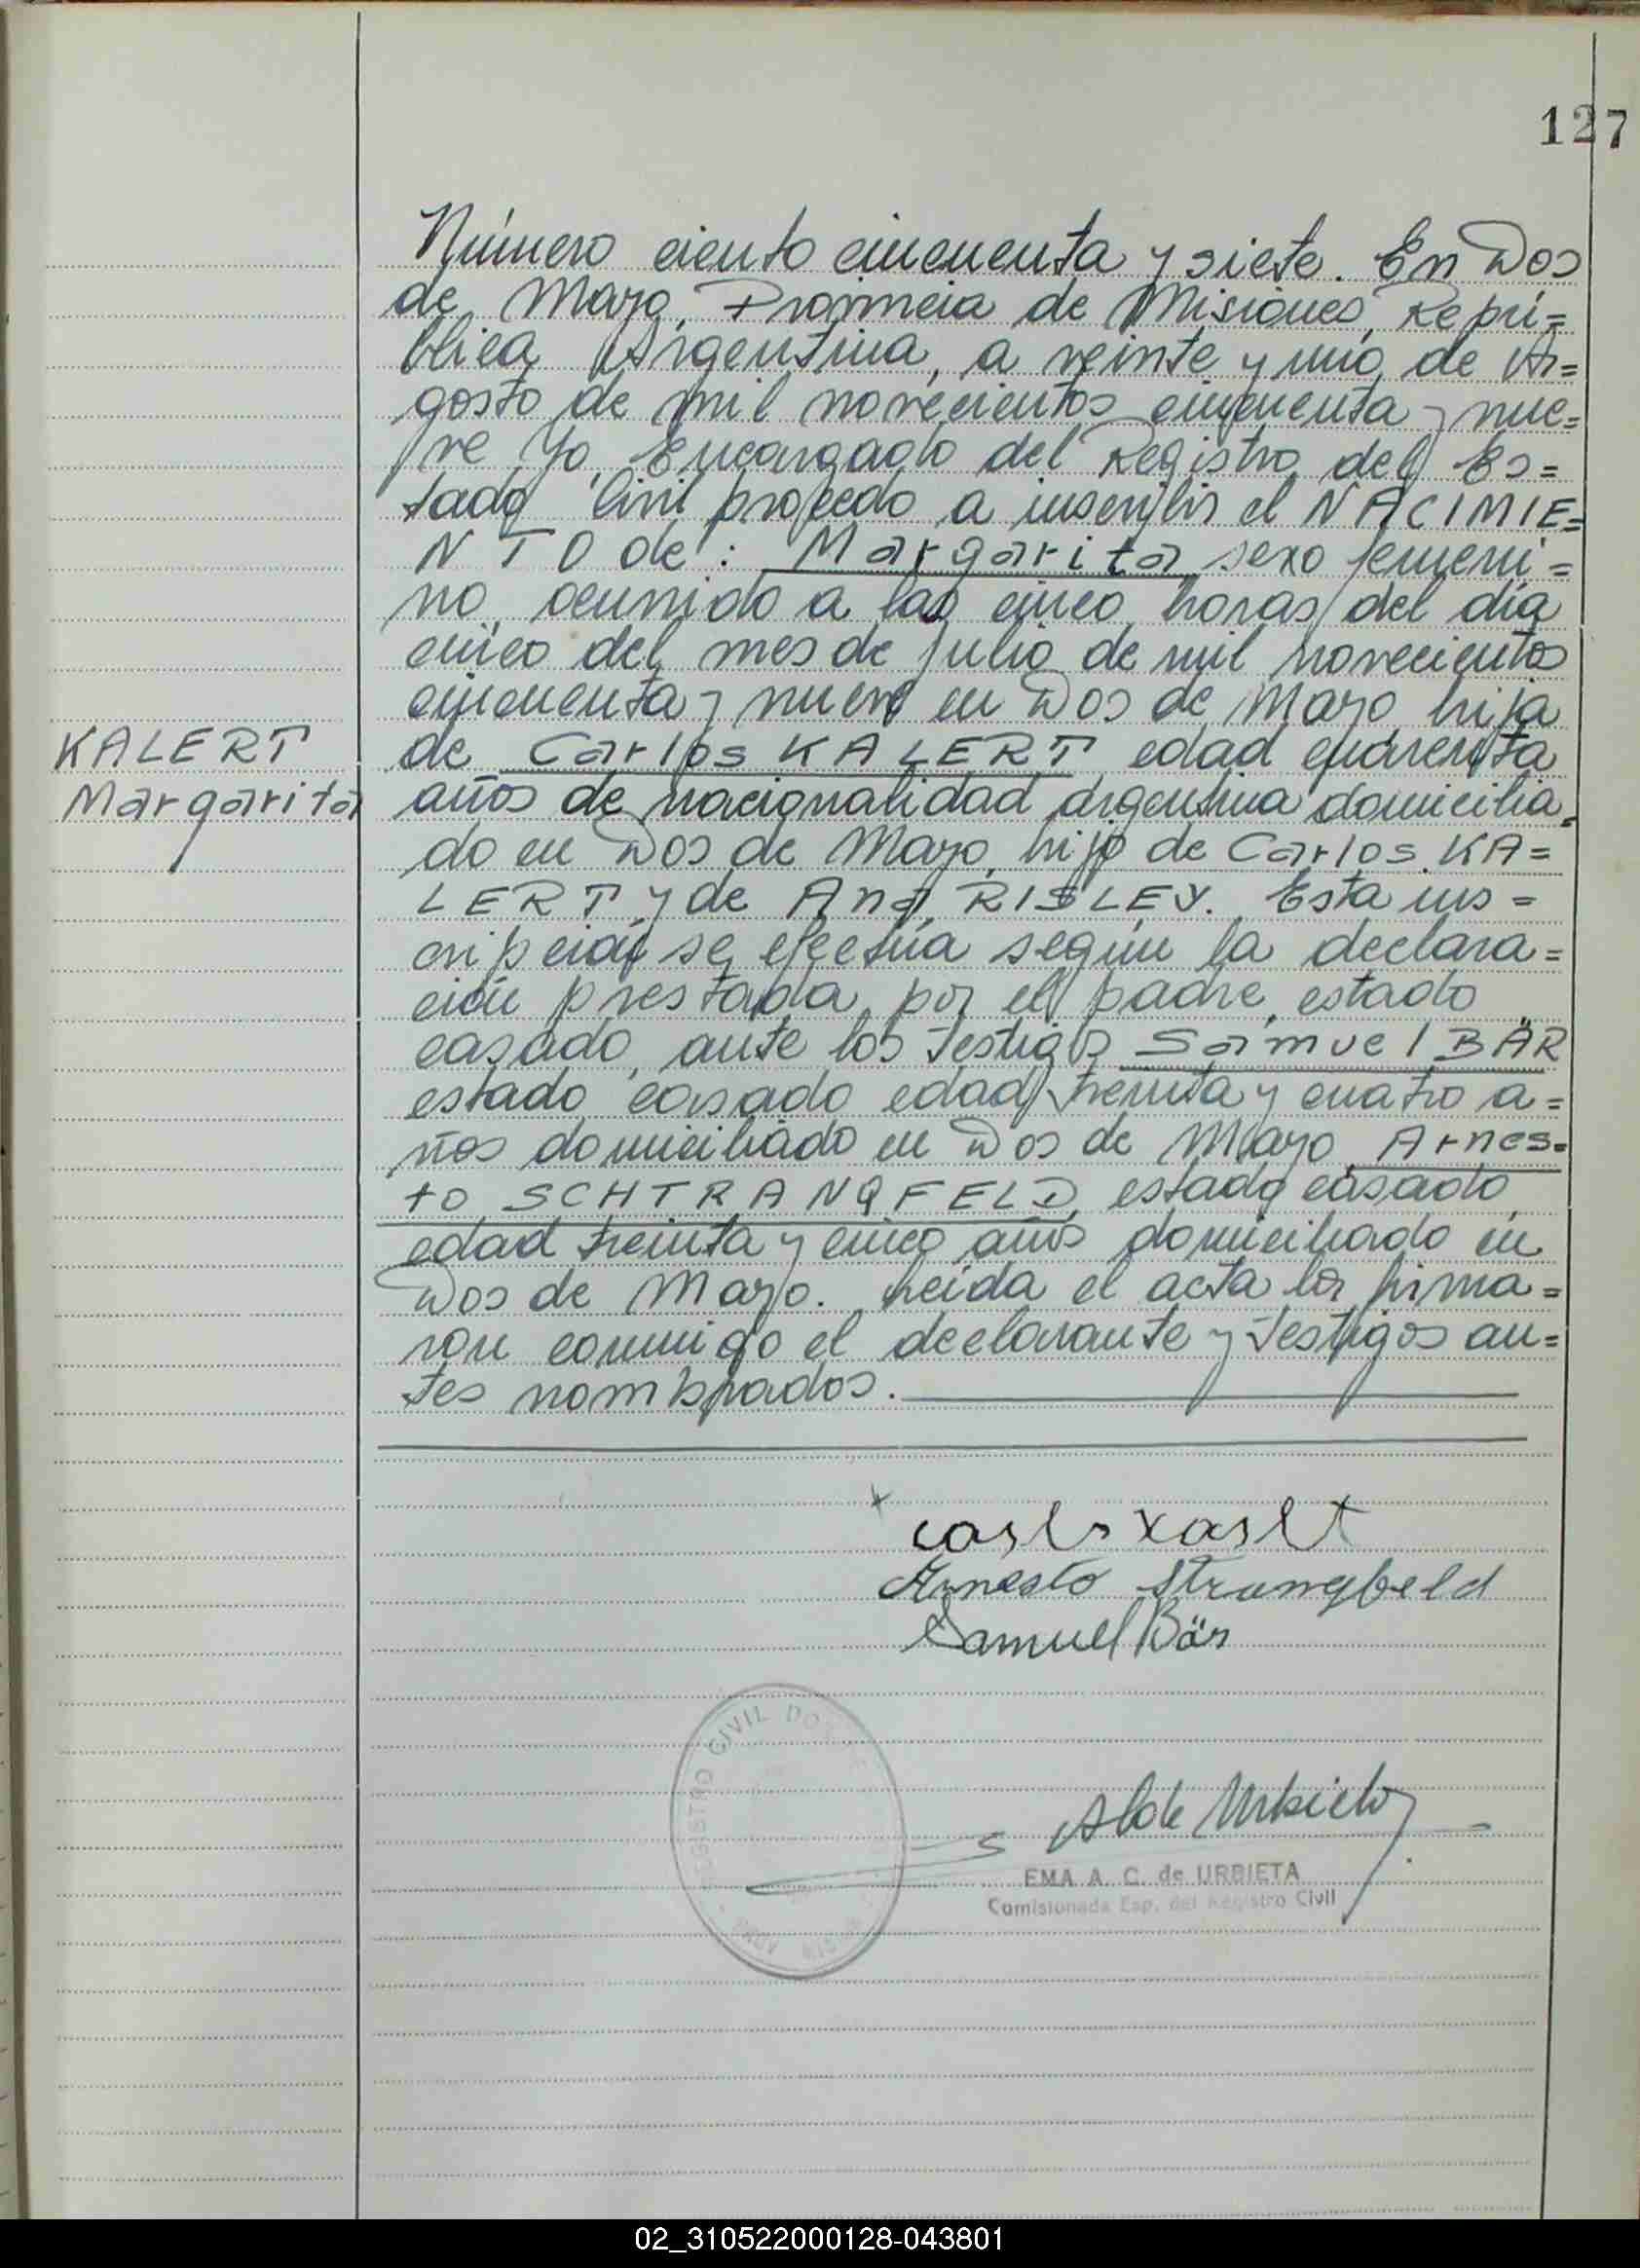 127
Número ciento cincuenta y siete. En Dos
de Mayo, Provincia de Misiones, Repú=
blica Argentina, a veinte y uno de A=
gosto de mil novecientos cincuenta y nue=
ve Yo, Encargado del Registro del Es=
tado Civil procedo a inscribir el NACIMIE=
NTO de: Margarita sexo femeni=
no, ocurrido a las cinco horas del día
cinco del mes de Julio de mil novecientos
cincuenta y nueve en Dos de Mayo hija
KALERT
de Carlos KALERT edad cuarenta
Margarita
años de nacionalidad argentina domicilia=
do en Dos de Mayo, hijo de Carlos KA=
LERT y de Ana RISLEY. Esta ins=
cripción se efectúa según la declara=
ción prestada por el padre, estado
casado, ante los testigos Samuel BÄR
estado casado edad treinta y cuatro a=
ños domiciliado en Dos de Mayo Arnes=
to SCHTRANGFELD, estado casado,
edad treinta y cinco años domiciliado en
Dos de Mayo. Leída el acta la firma=
ron conmigo el declarante y testigos an=
tes nombrados.
x
Carlos Kaslt
Arnesto Strangfeld
Samuel Bär
REGISTRO CIVIL DOS
A C de Urbieta
EMA A. C. de URBIETA
Comisionada Esp. del Registro Civil
02_310522000128-043801